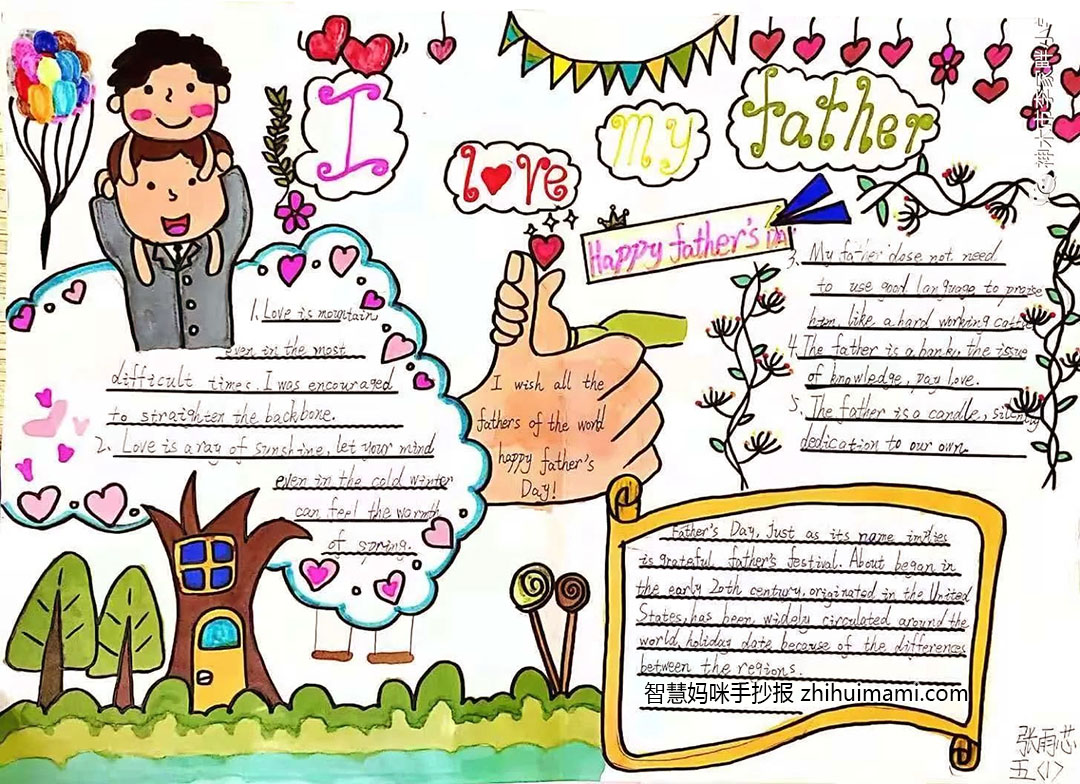 I
love
my
father
Happy father's
1. Love is mountain,
even in the most
difficult times. I was encouraged
to straighten the backbone.
2. Love is a ray of sunshine, let your mind
even in the cold winter
can feel the warmth
of spring.
I wish all the
fathers of the world
happy father's
Day!
3. My father dose not need
to use good language to praise
him, like a hard working cattle
4. The father is a bank, the issue
of knowledge, pay love.
5. The father is a candle, silently
dedication to our own.
Father's Day, Just as its name implies
is grateful father's festival. About began in
the early 20th century, originated in the United
States, has been widely circulated around the
world, holiday date because of the differences
between the regions.
智慧妈咪手抄报 zhihuimami.com
张雨芯
五〈1〉